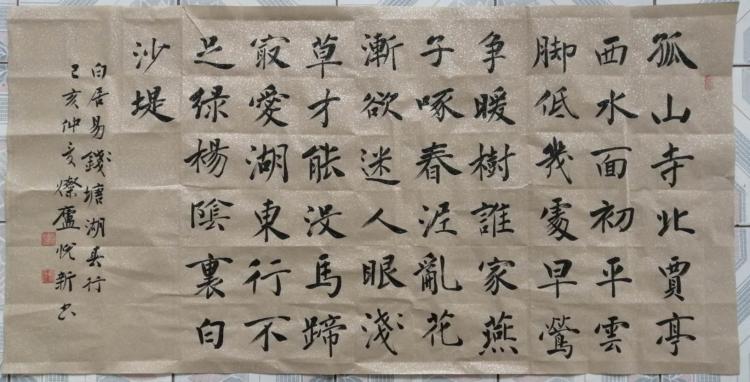 孤山寺北賈亭
西水面初平雲
脚低幾處早鶯
争暖樹誰家燕
子啄春泥亂花
漸欲迷人眼淺
草才能没馬蹄
冣愛湖東行不
足綠楊陰裏白
沙堤
白居易錢塘湖春行
己亥仲廬悦新书